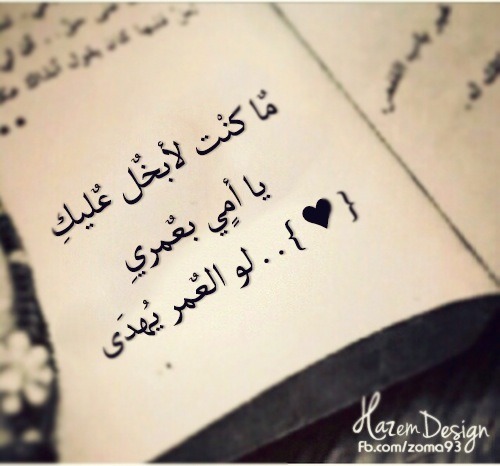 مٌا كنْت لأبخٌل عٌليكِ
يا أمِي بعٌمريِ
{ ♥ }.. لو العٌمر يُهدَى
Hazem Design
Fb.com/zoma93